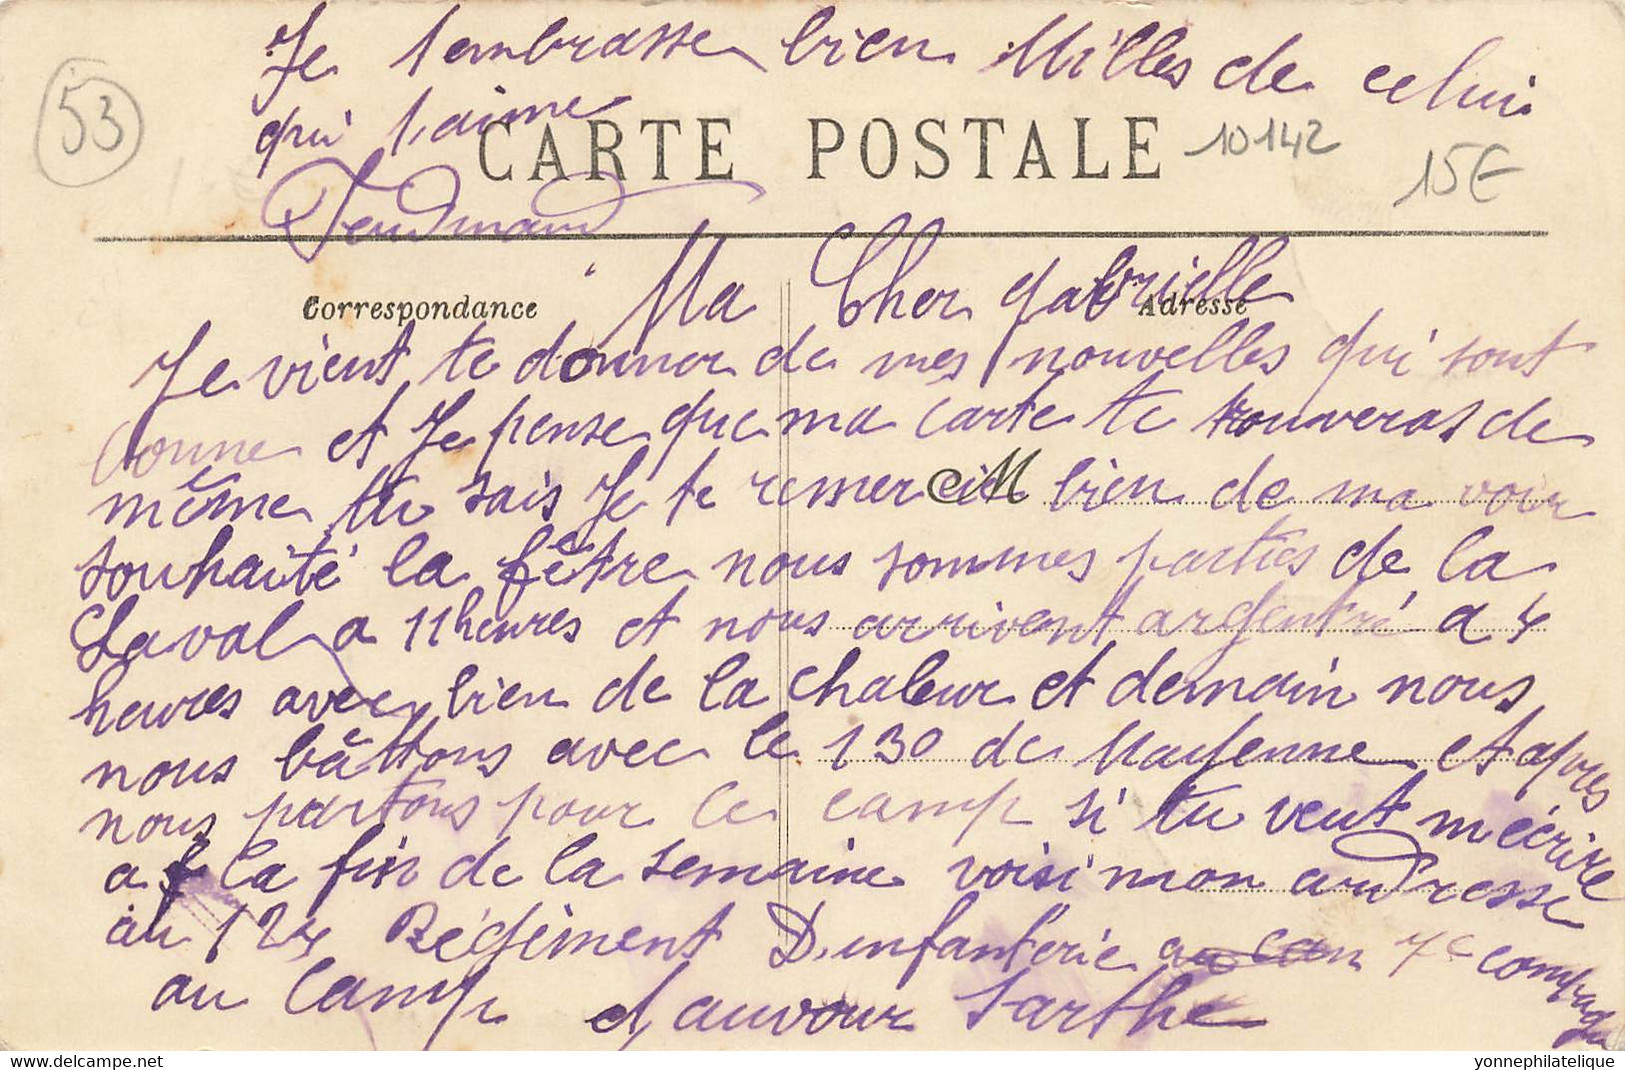 Je t'embrasse bien Milles de celui
qui t'aime
53
CARTE POSTALE
10142
15€
Ferdinand
Ma Cher gabrielle
Correspondance
Adresse
Je vient te donner de mes nouvelles qui sont
bonne et Je pense que ma carte te trouveras de
même tu sais Je te remerci bien de ma voir
souhaité la fêtre nous sommes parties de la
Laval a 11 heures et nous arrivent argentré a 4
heures avec bien de la chaleur et demain nous
nous bâttons avec le 130 de Mayenne et apres
nous partons pour le camp si tu veut m'écrire
a la fin de la semaine voisi mon addresse
au 124 Régément D'infanterie 7e compagn
au Camp d'auvour Sarthe
yonnephilatelique